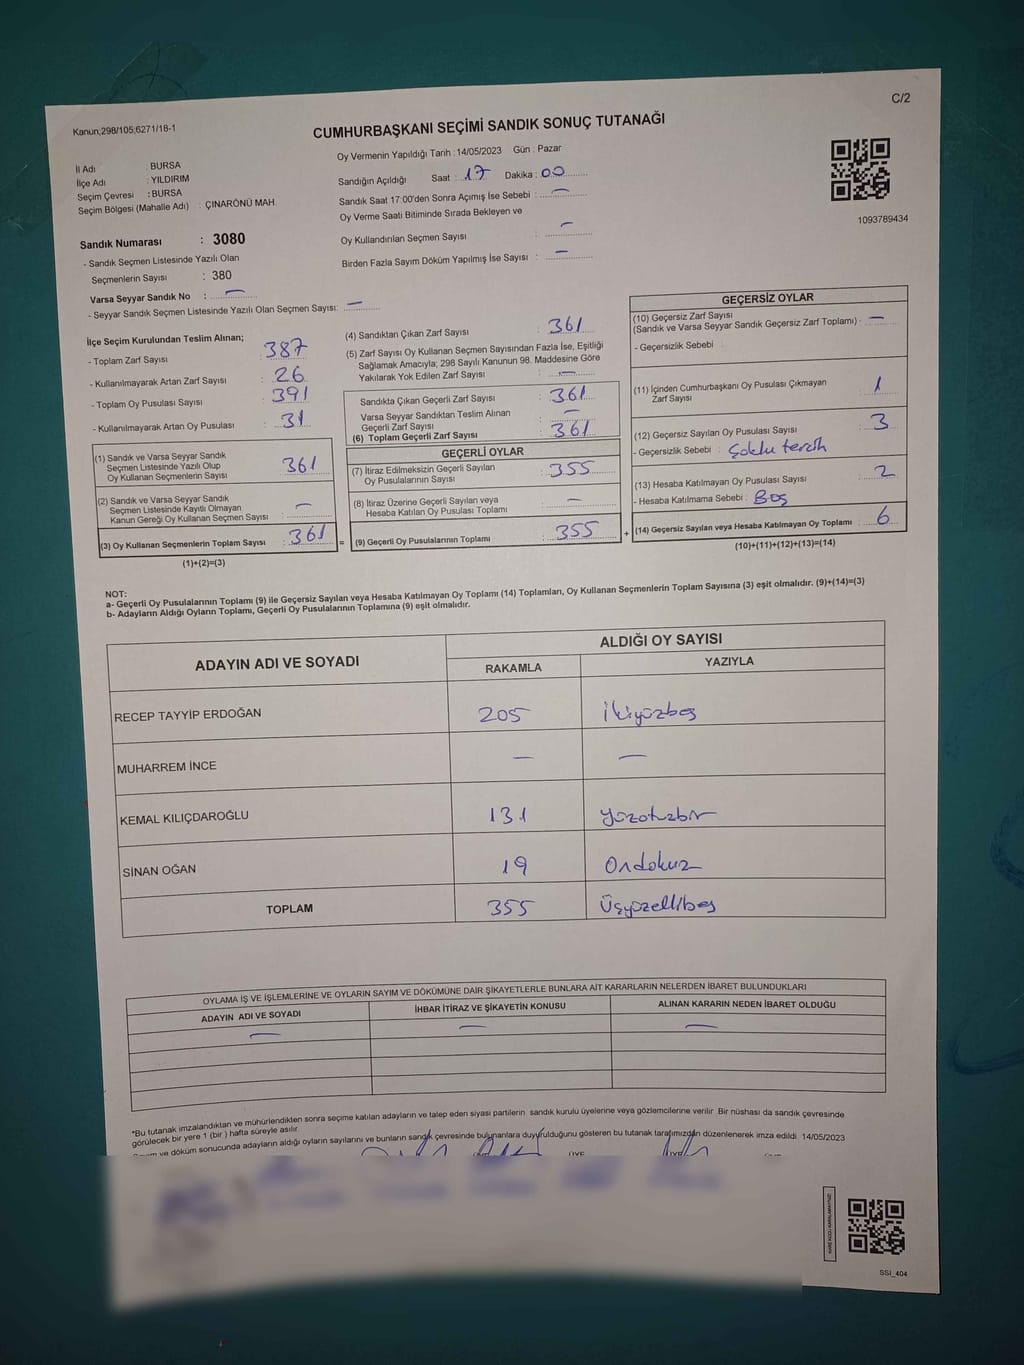 C/2
Kanun;298/105;6271/18-1
CUMHURBAŞKANI SEÇİMİ SANDIK SONUÇ TUTANAĞI
İl Adı : BURSA
İlçe Adı : YILDIRIM
Seçim Çevresi : BURSA
Seçim Bölgesi (Mahalle Adı) : ÇINARÖNÜ MAH.
Oy Vermenin Yapıldığı Tarih :14/05/2023 Gün : Pazar
Sandığın Açıldığı Saat : 17 Dakika : 00
Sandık Saat 17:00'den Sonra Açımış İse Sebebi : —
Oy Verme Saati Bitiminde Sırada Bekleyen ve
Oy Kullandırılan Seçmen Sayısı : —
Birden Fazla Sayım Döküm Yapılmış İse Sayısı : —
1093789434
Sandık Numarası : 3080
- Sandık Seçmen Listesinde Yazılı Olan
Seçmenlerin Sayısı : 380
Varsa Seyyar Sandık No : —
- Seyyar Sandık Seçmen Listesinde Yazılı Olan Seçmen Sayısı: —
İlçe Seçim Kurulundan Teslim Alınan;
- Toplam Zarf Sayısı : 387
- Kullanılmayarak Artan Zarf Sayısı : 26
- Toplam Oy Pusulası Sayısı : 391
- Kullanılmayarak Artan Oy Pusulası : 31
(1) Sandık ve Varsa Seyyar Sandık
Seçmen Listesinde Yazılı Olup
Oy Kullanan Seçmenlerin Sayısı : 361
(2) Sandık ve Varsa Seyyar Sandık
Seçmen Listesinde Kayıtlı Olmayan
Kanun Gereği Oy Kullanan Seçmen Sayısı : —
(3) Oy Kullanan Seçmenlerin Toplam Sayısı : 361 =
(1)+(2)=(3)
(4) Sandıktan Çıkan Zarf Sayısı : 361
(5) Zarf Sayısı Oy Kullanan Seçmen Sayısından Fazla İse, Eşitliği
Sağlamak Amacıyla; 298 Sayılı Kanunun 98. Maddesine Göre
Yakılarak Yok Edilen Zarf Sayısı : —
Sandıkta Çıkan Geçerli Zarf Sayısı : 361
Varsa Seyyar Sandıktan Teslim Alınan
Geçerli Zarf Sayısı : —
(6) Toplam Geçerli Zarf Sayısı : 361
GEÇERLİ OYLAR
(7) İtiraz Edilmeksizin Geçerli Sayılan
Oy Pusulalarının Sayısı : 355
(8) İtiraz Üzerine Geçerli Sayılan veya
Hesaba Katılan Oy Pusulası Toplamı : —
(9) Geçerli Oy Pusulalarının Toplamı : 355 +
GEÇERSİZ OYLAR
(10) Geçersiz Zarf Sayısı
(Sandık ve Varsa Seyyar Sandık Geçersiz Zarf Toplamı) : —
- Geçersizlik Sebebi :
(11) İçinden Cumhurbaşkanı Oy Pusulası Çıkmayan
Zarf Sayısı : 1
(12) Geçersiz Sayılan Oy Pusulası Sayısı : 3
- Geçersizlik Sebebi : Çoklu tercih
(13) Hesaba Katılmayan Oy Pusulası Sayısı : 2
- Hesaba Katılmama Sebebi : Boş
(14) Geçersiz Sayılan veya Hesaba Katılmayan Oy Toplamı : 6
(10)+(11)+(12)+(13)=(14)
NOT:
a- Geçerli Oy Pusulalarının Toplamı (9) ile Geçersiz Sayılan veya Hesaba Katılmayan Oy Toplamı (14) Toplamları, Oy Kullanan Seçmenlerin Toplam Sayısına (3) eşit olmalıdır. (9)+(14)=(3)
b- Adayların Aldığı Oyların Toplamı, Geçerli Oy Pusulalarının Toplamına (9) eşit olmalıdır.
ADAYIN ADI VE SOYADI
ALDIĞI OY SAYISI
RAKAMLA YAZIYLA
RECEP TAYYİP ERDOĞAN 205 İkiyüzbeş
MUHARREM İNCE — —
KEMAL KILIÇDAROĞLU 131 Yüzotuzbir
SİNAN OĞAN 19 Ondokuz
TOPLAM 355 Üçyüzellibeş
OYLAMA İŞ VE İŞLEMLERİNE VE OYLARIN SAYIM VE DÖKÜMÜNE DAİR ŞİKAYETLERLE BUNLARA AİT KARARLARIN NELERDEN İBARET BULUNDUKLARI
ADAYIN ADI VE SOYADI İHBAR İTİRAZ VE ŞİKAYETİN KONUSU ALINAN KARARIN NEDEN İBARET OLDUĞU
— — —
*Bu tutanak imzalandıktan ve mühürlendikten sonra seçime katılan adayların ve talep eden siyasi partilerin sandık kurulu üyelerine veya gözlemcilerine verilir. Bir nüshası da sandık çevresinde
görülecek bir yere 1 (bir ) hafta süreyle asılır.
ve döküm sonucunda adayların aldığı oyların sayılarını ve bunların sandık çevresinde bulunanlara duyurulduğunu gösteren bu tutanak tarafımızdan düzenlenerek imza edildi. 14/05/2023
SSI_404